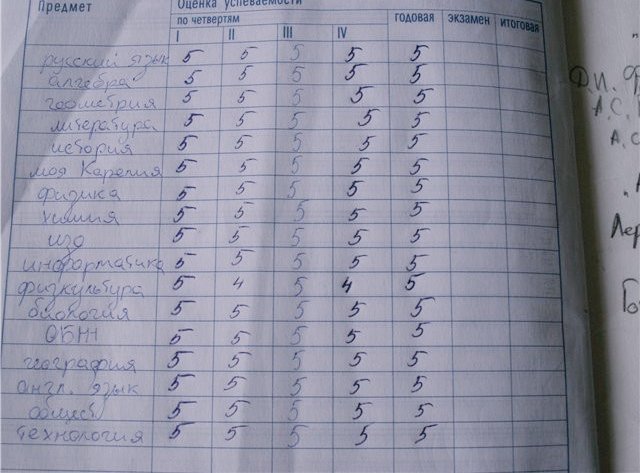 Предмет
Оценка успеваемости
по четвертям годовая экзамен итоговая
I II III IV
русский язык 5 5 5 5 5
алгебра 5 5 5 5 5
геометрия 5 5 5 5 5
литература 5 5 5 5 5
история 5 5 5 5 5
моя Карелия 5 5 5 5 5
физика 5 5 5 5 5
химия 5 5 5 5 5
изо 5 5 5 5 5
информатика 5 5 5 5 5
физкультура 5 4 5 4 5
биология 5 5 5 5 5
ОБЖ 5 5 5 5 5
география 5 5 5 5 5
англ. язык 5 5 5 5 5
общест 5 5 5 5 5
технология 5 5 5 5 5
Д.И.
А.С.
А.С